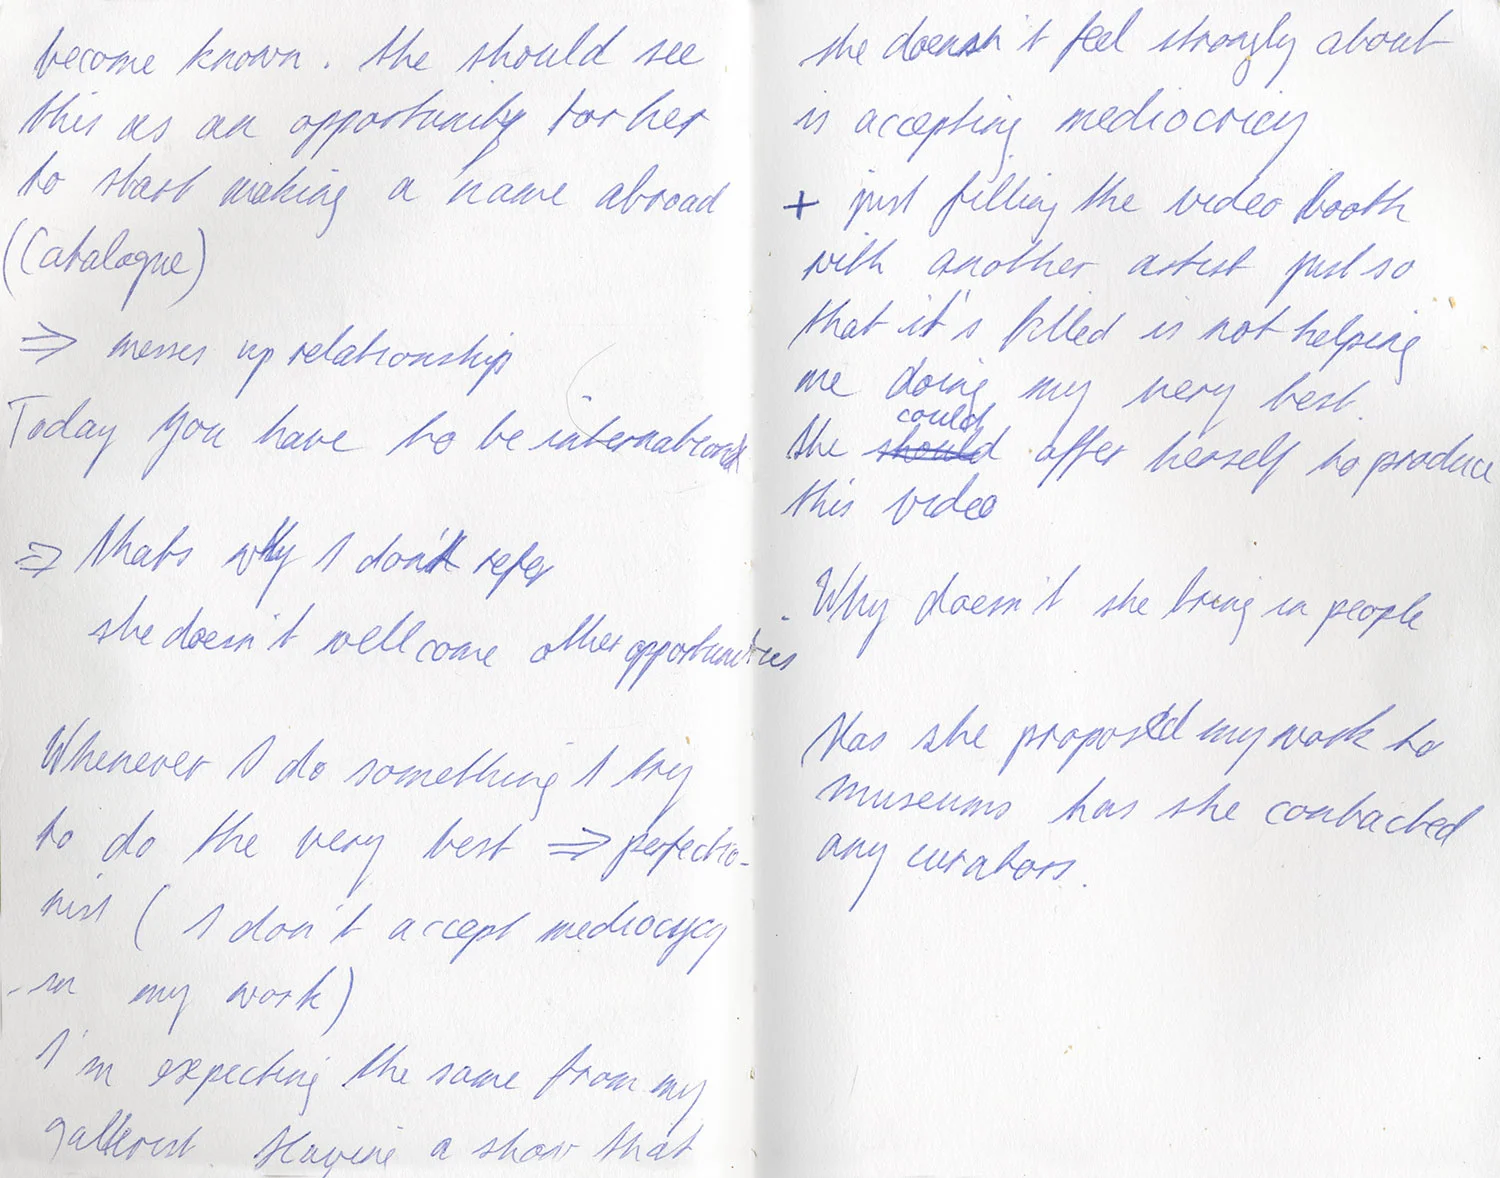 become known. She should see
this as an opportunity for her
to start making a name abroad
(Catalogue)
⇒ messes up relationship
Today you have to be international
⇒ thats why I don't refer
she doesn't wellcome other opportunities
Whenever I do something I try
to do the very best ⇒ perfectio-
nist ( I don't accept mediocrycy
in my work)
I'm expecting the same from my
gallerist Having a show that
she doesn't feel strongly about
is accepting mediocricy
+ just filling the video booth
with another artist just so
that it's filled is not helping
me doing my very best.
could
She should offer herself to produce
this video
Why doesn't she bring in people
Has she proposed my work to
museums has she contacted
any curators.